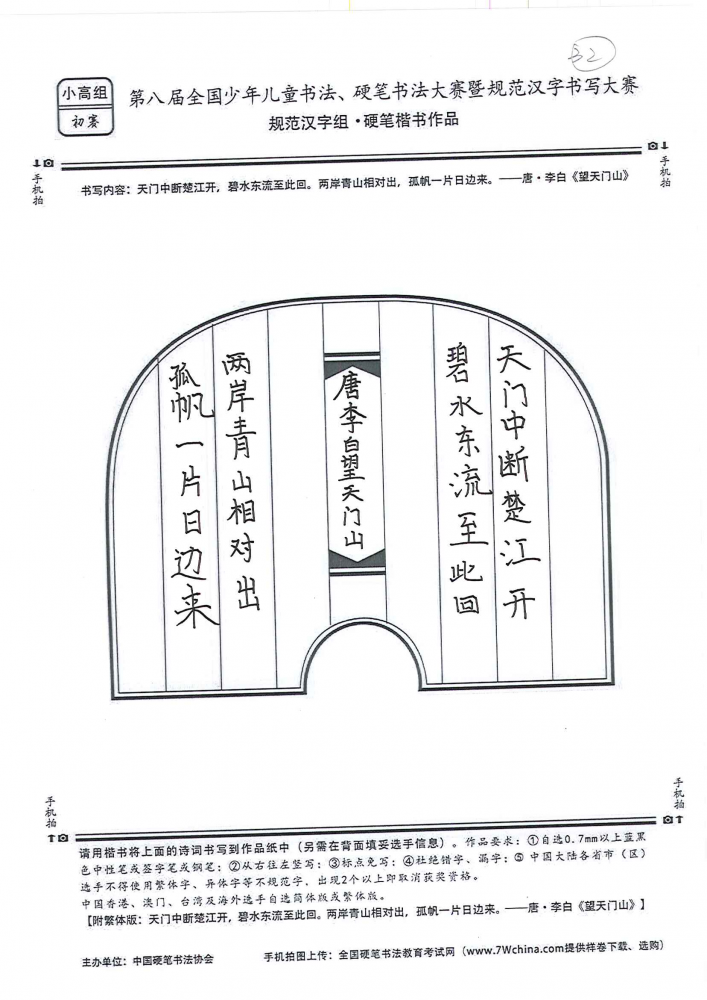 32
小高组
初赛
第八届全国少年儿童书法、硬笔书法大赛暨规范汉字书写大赛
规范汉字组·硬笔楷书作品
手机拍
手机拍
书写内容：天门中断楚江开，碧水东流至此回。两岸青山相对出，孤帆一片日边来。——唐·李白《望天门山》
天门中断楚江开
碧水东流至此回
唐李白望天门山
两岸青山相对出
孤帆一片日边来
手机拍
手机拍
请用楷书将上面的诗词书写到作品纸中（另需在背面填妥选手信息）。作品要求：①自选0.7mm以上蓝黑
色中性笔或签字笔或钢笔；②从右往左竖写；③标点免写；④杜绝错字、漏字；⑤中国大陆各省市（区）
选手不得使用繁体字、异体字等不规范字，出现2个以上即取消获奖资格。
中国香港、澳门、台湾及海外选手自选简体版或繁体版。
【附繁体版：天门中断楚江开，碧水东流至此回。两岸青山相对出，孤帆一片日边来。——唐·李白《望天门山》】
主办单位：中国硬笔书法协会
手机拍图上传：全国硬笔书法教育考试网（www.7Wchina.com提供样卷下载、选购）